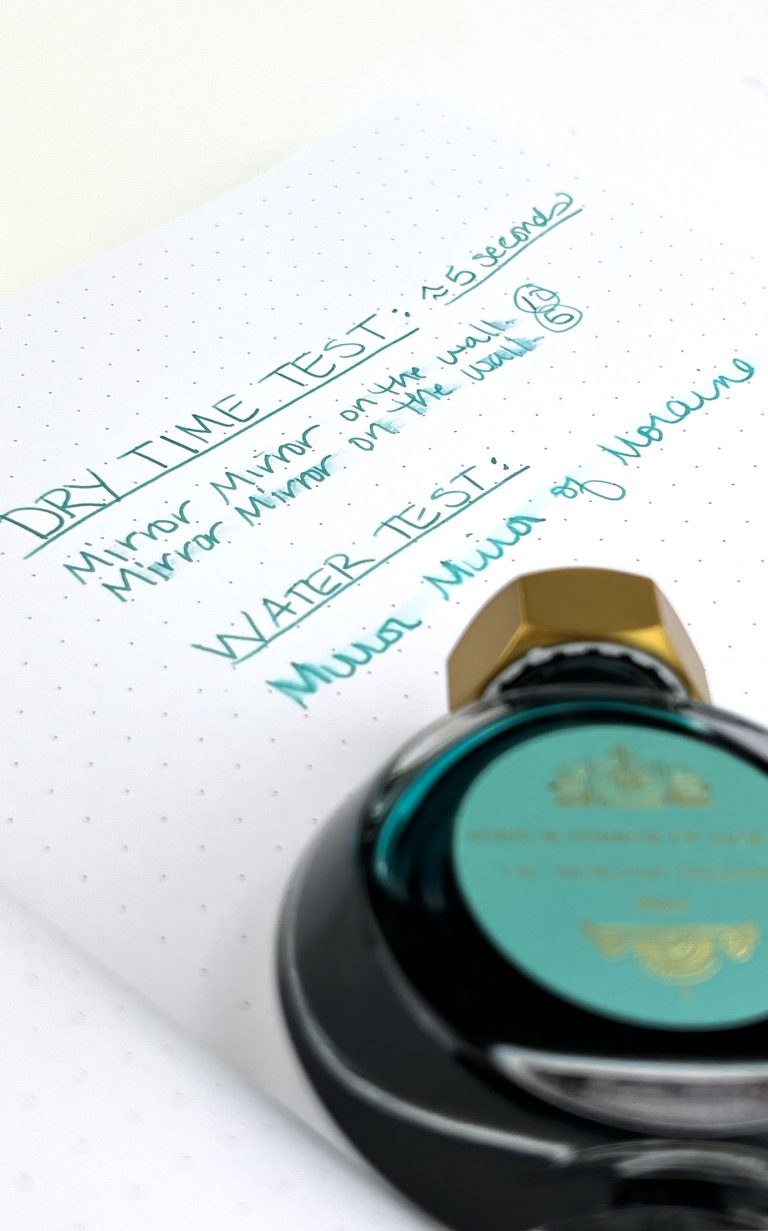 DRY TIME TEST: ≈5 seconds
Mirror Mirror on the wall 10
Mirror Mirror on the wall 5
WATER TEST:
Mirror Mirror of Moraine